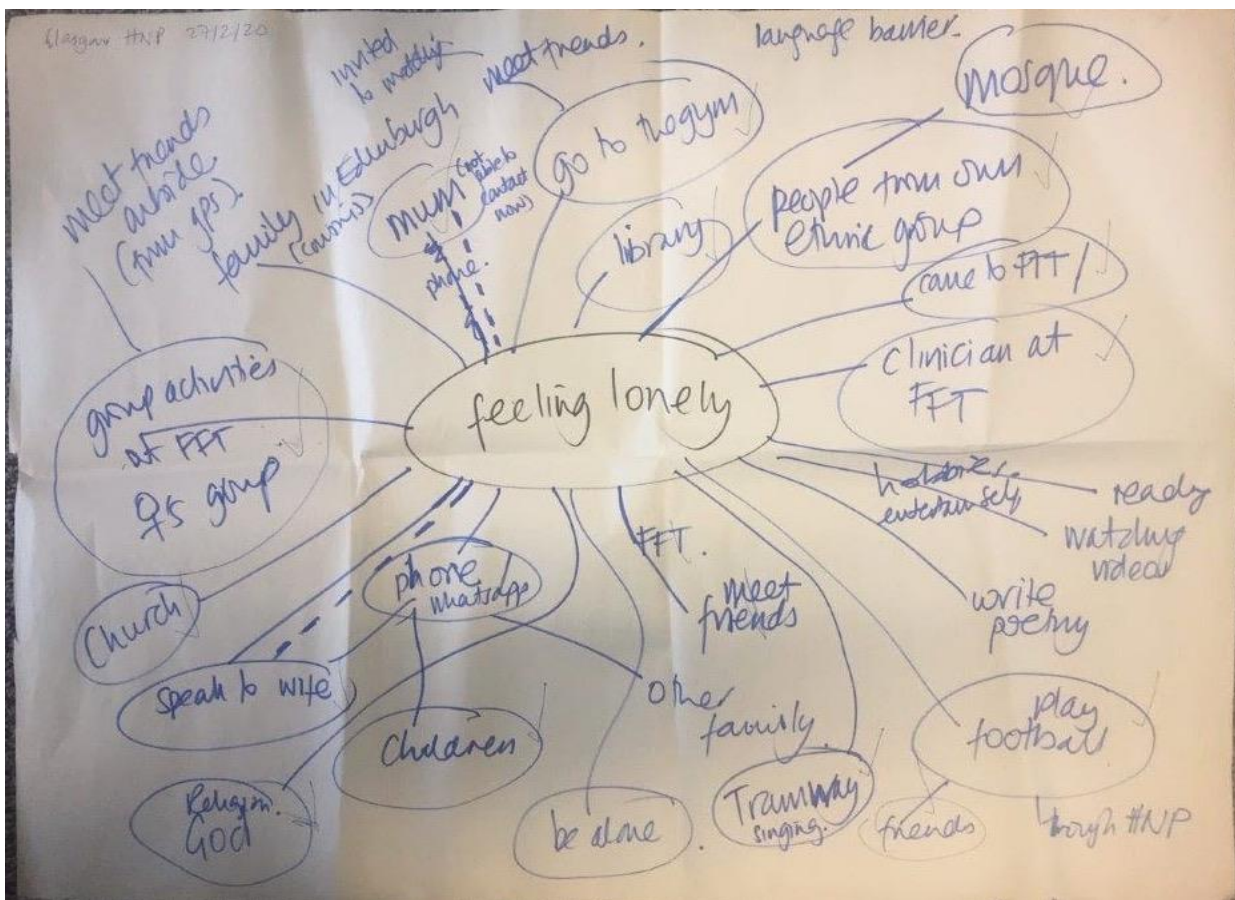 Glasgow HNP 27/2/20
invited
to wedding
meet friends.
language barrier.
mosque.
meet friends
outside
(from gps).
family in Edinburgh
(cousins)
mum
(not
able to
contact
now)
phone.
go to the gym
library
people from own
ethnic group
came to FFT /
clinician at
FFT
feeling lonely
group activities
at FFT
♀s group
hobbies
entertain self
reading
watching
videos
write
poetry
FFT.
meet
friends
phone /
whatsapp
Church
speak to wife
children
other
family.
play
football
Religion.
GOD
be alone.
Tramway
singing.
friends
through HNP